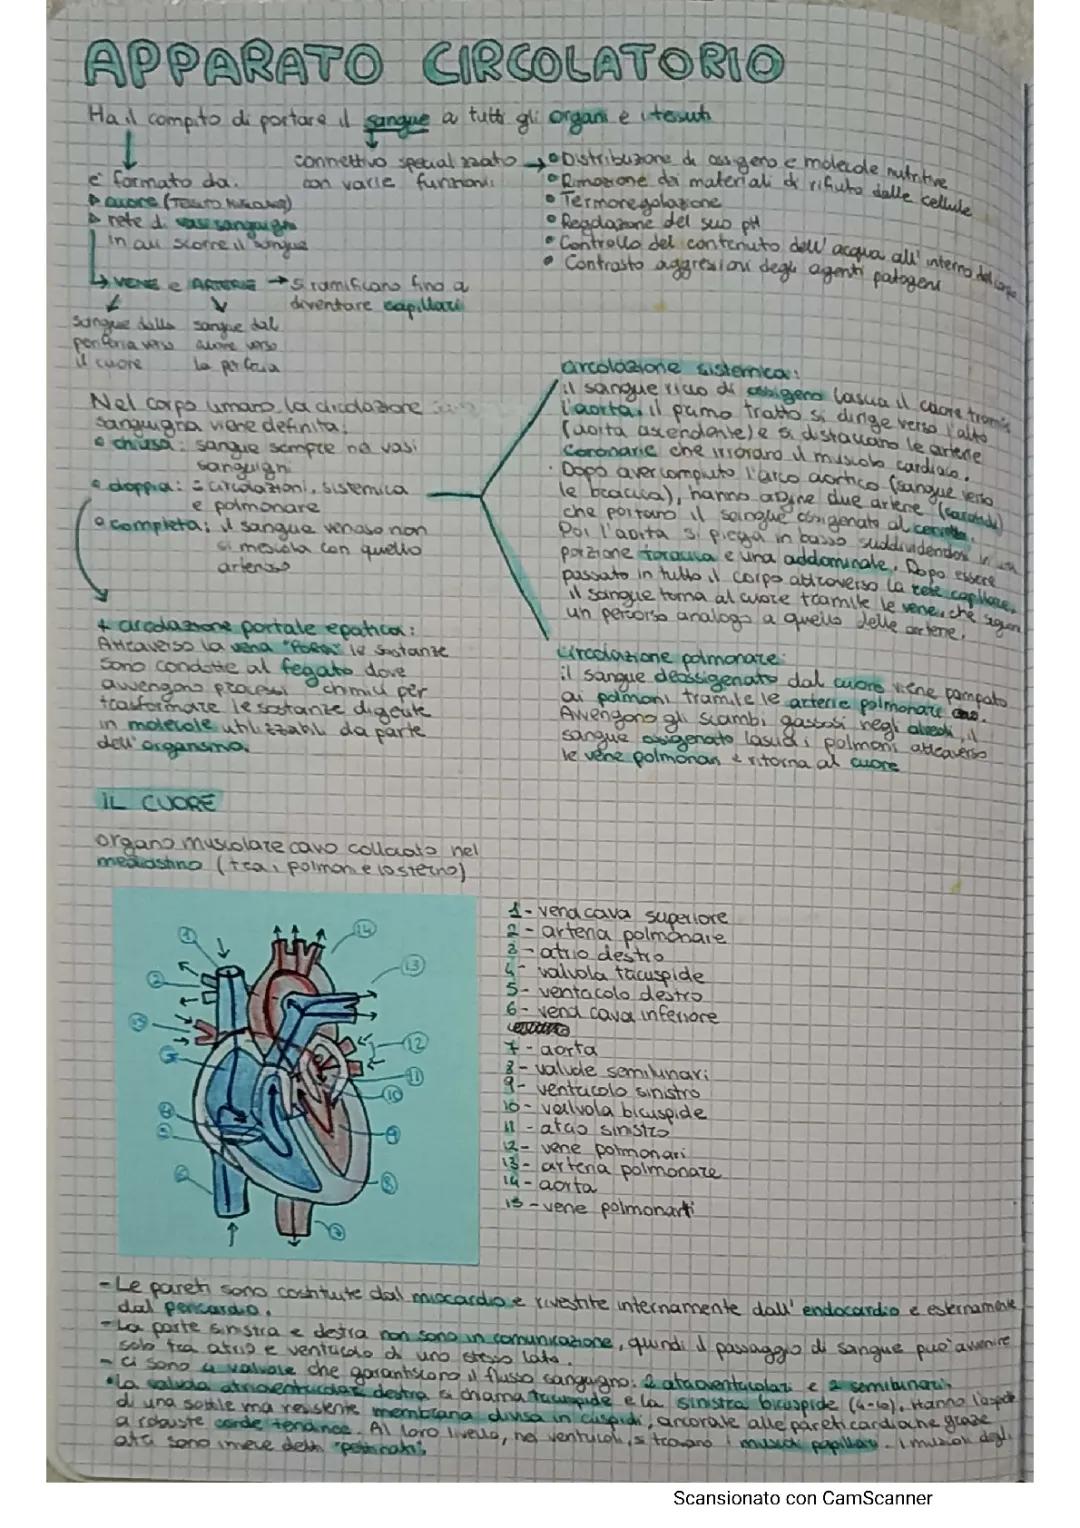 APPARATO CIRCOLATORIO
Ha il compito di portare il sangue a tutti gli organi e i tessuti
è formato da:
▹ cuore (TESSUTO MUSCOLARE)
▹ rete di vasi sanguigni
in cui scorre il sangue
VENE e ARTERIE → si ramificano fino a
diventare capillari
sangue dalla periferia verso il cuore
sangue dal cuore verso la periferia
connettivo specializzato
con varie funzioni:
• Distribuzione di ossigeno e molecole nutritive
• Rimozione dei materiali di rifiuto dalle cellule
• Termoregolazione
• Regolazione del suo pH
• Controllo del contenuto dell'acqua all'interno del corpo
• Contrasto aggressioni degli agenti patogeni
Nel corpo umano la circolazione
sanguigna viene definita:
• chiusa: sangue sempre nei vasi
sanguigni
• doppia: 2 circolazioni, sistemica
e polmonare
• completa: il sangue venoso non
si mescola con quello
arterioso
+ circolazione portale epatica:
Attraverso la vena "PORTA" le sostanze
sono condotte al fegato dove
avvengono processi chimici per
trasformare le sostanze digerite
in molecole utilizzabili da parte
dell'organismo.
circolazione sistemica:
il sangue ricco di ossigeno lascia il cuore tramite
l'aorta. Il primo tratto si dirige verso l'alto
(aorta ascendente) e si distaccano le arterie
coronarie che irrorano il muscolo cardiaco.
Dopo aver compiuto l'arco aortico (sangue verso
le braccia), hanno origine due arterie (carotidi)
che portano il sangue ossigenato al cervello.
Poi l'aorta si piega in basso suddividendosi in una
porzione toracica e una addominale. Dopo essere
passato in tutto il corpo attraverso la rete capillare,
il sangue torna al cuore tramite le vene, che seguono
un percorso analogo a quello delle arterie.
circolazione polmonare:
il sangue deossigenato dal cuore viene pompato
ai polmoni tramite le arterie polmonari.
Avvengono gli scambi gassosi negli alveoli, il
sangue ossigenato lascia i polmoni attraverso
le vene polmonari e ritorna al cuore
IL CUORE
organo muscolare cavo collocato nel
mediastino (tra i polmoni e lo sterno)
1
2
15
3
4
5
6
14
13
12
11
10
9
8
7
1- vena cava superiore
2- arteria polmonare
3- atrio destro
4- valvola tricuspide
5- ventricolo destro
6- vena cava inferiore
7- aorta
8- valvole semilunari
9- ventricolo sinistro
10- valvola bicuspide
11- atrio sinistro
12- vene polmonari
13- arteria polmonare
14- aorta
15- vene polmonari
- Le pareti sono costituite dal miocardio e rivestite internamente dall'endocardio e esternamente
dal pericardio.
- La parte sinistra e destra non sono in comunicazione, quindi il passaggio di sangue può avvenire
solo tra atrio e ventricolo di uno stesso lato.
- Ci sono 4 valvole che garantiscono il flusso sanguigno: 2 atrioventricolari e 2 semilunari.
• La valvola atrioventricolare destra si chiama tricuspide e la sinistra bicuspide (4-10). Hanno l'aspetto
di una sottile ma resistente membrana divisa in cuspidi, ancorate alle pareti cardiache grazie
a robuste corde tendinee. Al loro livello, nei ventricoli, si trovano i muscoli papillari. I muscoli degli
atri sono invece detti "pettinati".
Scansionato con CamScanner